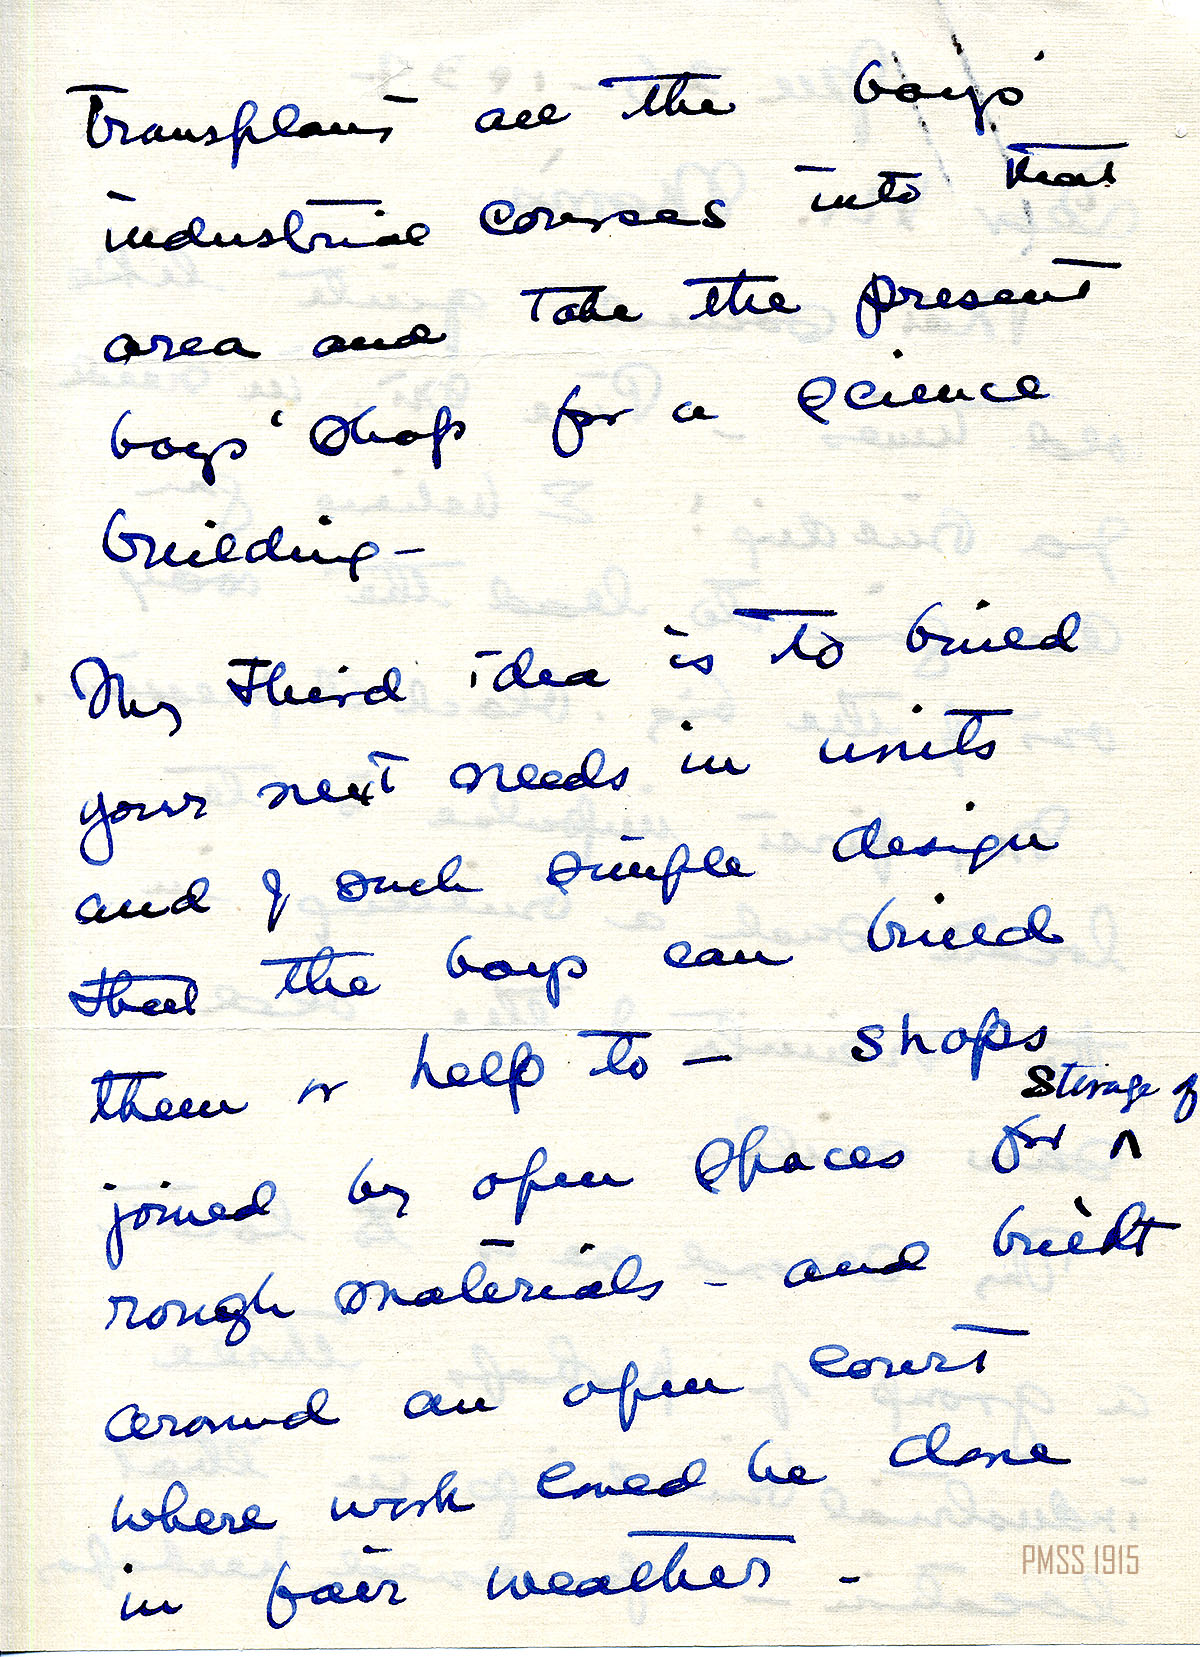 Transplant all the boys'
industrial courses into that
area and take the present
boys' shop for a science
building –
My third idea is to build
your next needs in units
and of such simple design
that the boys can build
them or help to – shops
storage of
joined by open spaces for ^
rough materials – and built
around an open court
where work could be done
in fair weather –
PMSS 1915